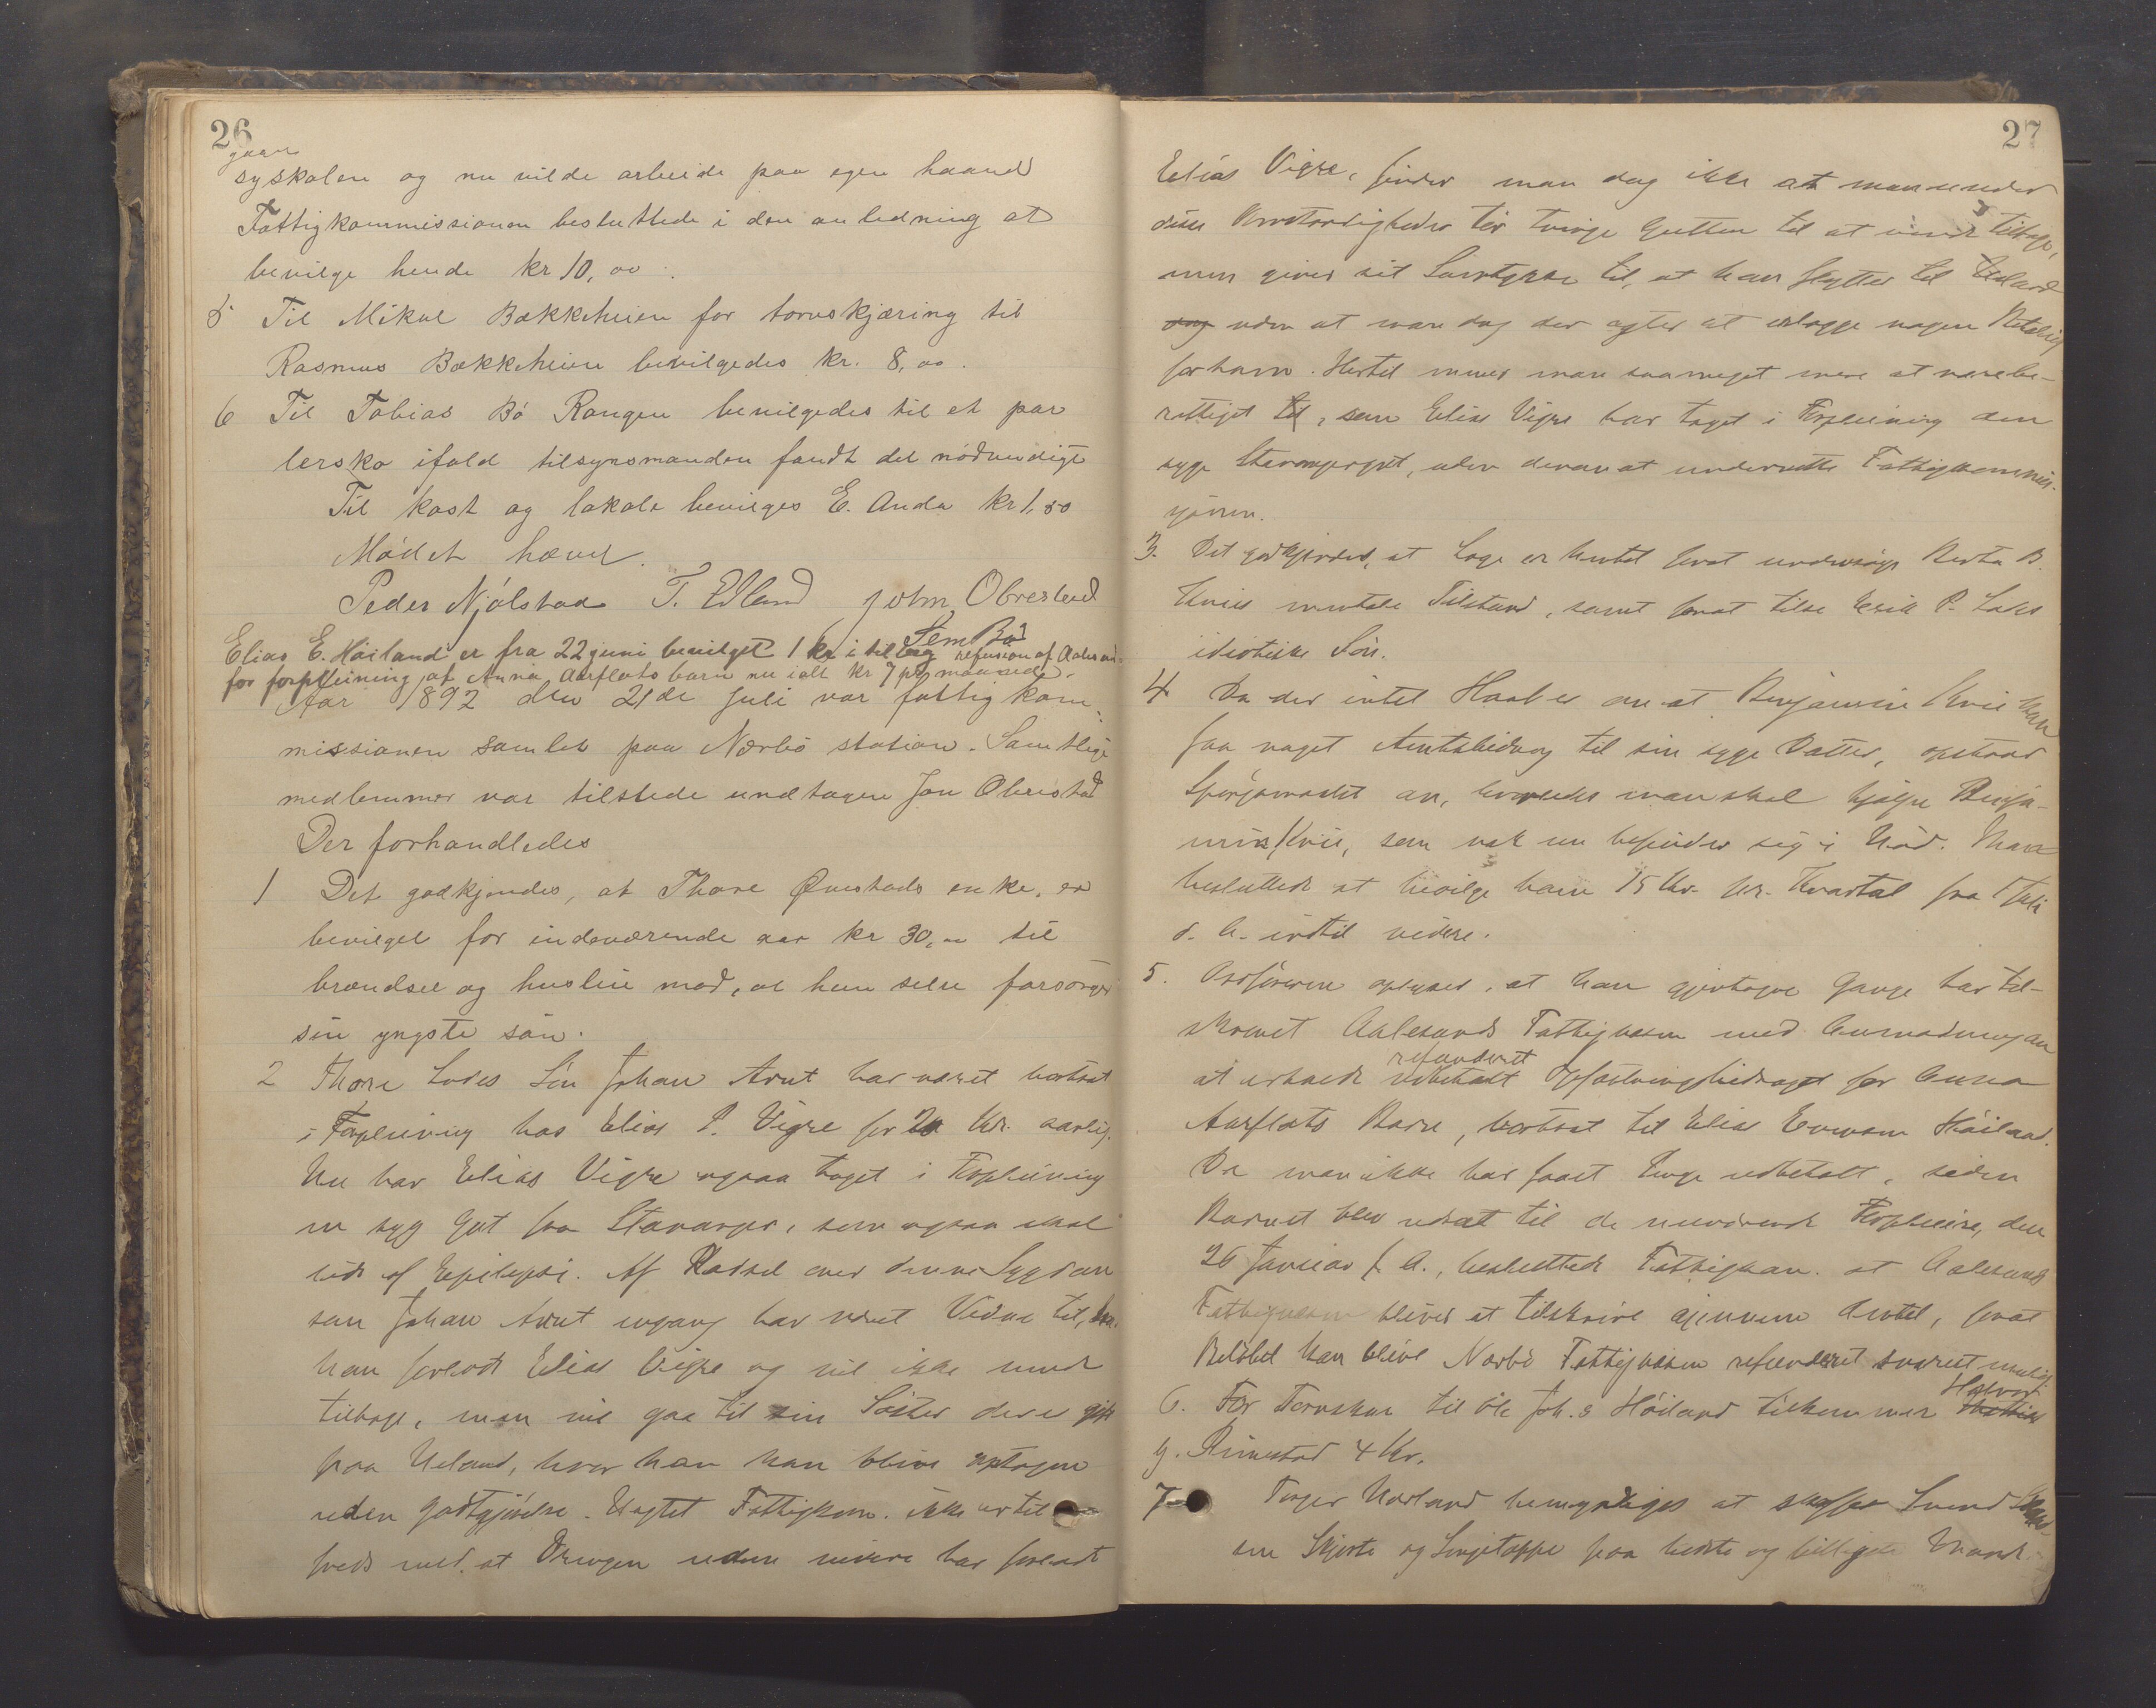 26
gaar
syskolen og nu vilde arbeide paa egen haand
Fattigkommissionen besluttede i den anledning at
bevilge hende kr 10,00.
5 Til Mikal Bækkeheien for torvskjæring til
Rasmus Bækkeheien bevilgedes kr. 8,00.
6 Til Tobias Bö Rongen bevilgedes til et par
lersko ifald tilsynsmanden fandt det nödvendigt
Til kost og lokale bevilges E. Anda kr 1,80
Mödet hævet.
Peder Njølstad T. Edland John Obrestad
Sem Bö
Elias E. Höiland er fra 22 juni bevilget 1 kr i tillæg refusion af Aalesund
for forpleining af Anna Aarflots barn nu ialt kr 7 pr maaned.
Aar 1892 den 21de juli var fattigkom-
missionen samlet paa Nærbö station. Samtlige
medlemmer var tilstede undtagen Jon Obrestad
Der forhandledes
1 Det godkjendes, at Thore Øvestads enke, er
bevilget for indeværende aar kr 30,00 til
brændsel og husleie mod, at hun selv forsörger
sin yngste sön.
2 Thore Lodes Sön Johan Arnt har været bortsat
i Forpleining hos Elias P. Vigre for 20 Kr. aarlig.
Nu har Elias Vigre ogsaa taget i Forpleining
en syg Gut fra Stavanger, som ogsaa skal
lide af Epilepsi. Af Rædsel over denne Sygdom
som Johan Arnt engang har været Vidne til, har
han forladt Elias Vigre og vil ikke vende
tilbage, men vil gaa til sin Söster der er gift
paa Ueland, hvor han kan blive optagen
uden Godtgjörelse. Uagtet Fattigkom. ikke er til-
freds med, at Drengen uden videre har forladt
27
Elias Vigre, finder man dog ikke at man under
disse Omstændigheder tör tvinge Gutten til at vende tilbage,
men giver sit Samtykke til, at han flytter til Ueland
dog uden at man dog der agter at erlægge nogen Betaling
for ham. Hertil mener man saameget mere at være be-
rettiget til, som Elias Vigre har taget i Forpleining den
syge Stavangergut, uden derom at underrette Fattigkommis-
sjonen.
3. Det godkjendes, at Læge er hentet forat undersöge Berta B.
Kvies mentale Tilstand, samt forat tilse Erik P. Lodes
idiotiske Sön.
4 Da der intet Haab er om at Benjamin Kvie kan
faa noget Amtsbidrag til sin syge Datter, opstaar
Spörgsmaalet om, hvorledes man skal hjælpe Benja-
min Kvie, som nok nu befinder sig i Nöd. Man
besluttede at bevilge ham 15 Kr. pr. Kvartal fra 1 Juli
d. A. indtil videre.
5. Ordföreren oplyser, at han gjentagne Gange har til-
skrevet Aalesunds Fattigvæsen med Anmodning om
at erholde refunderet udbetalt Opfostringsbidraget for Anna
Aarflots Barn, bortsat til Elias Enevoem Höiland.
Da man ikke har faaet Penge udbetalt, siden
Barnet blev udsat til de nuværende Forpleiere, den
26 Januar f. A., besluttede Fattigkom. at Aalesunds
Fattigvæsen bliver at tilskrive gjennem Amtet, forat
Belöbet kan blive Nærbö Fattigvæsen refunderet snarest mulig
6. For Torvskur til Ole Joh.s Höiland tilkommer Halvor
G. Rimestad 4 Kr.
7 Torger Varland bemyndiges at skaffe Svend
en Skjorte og Sengetæppe paa bedste og billigste Maade